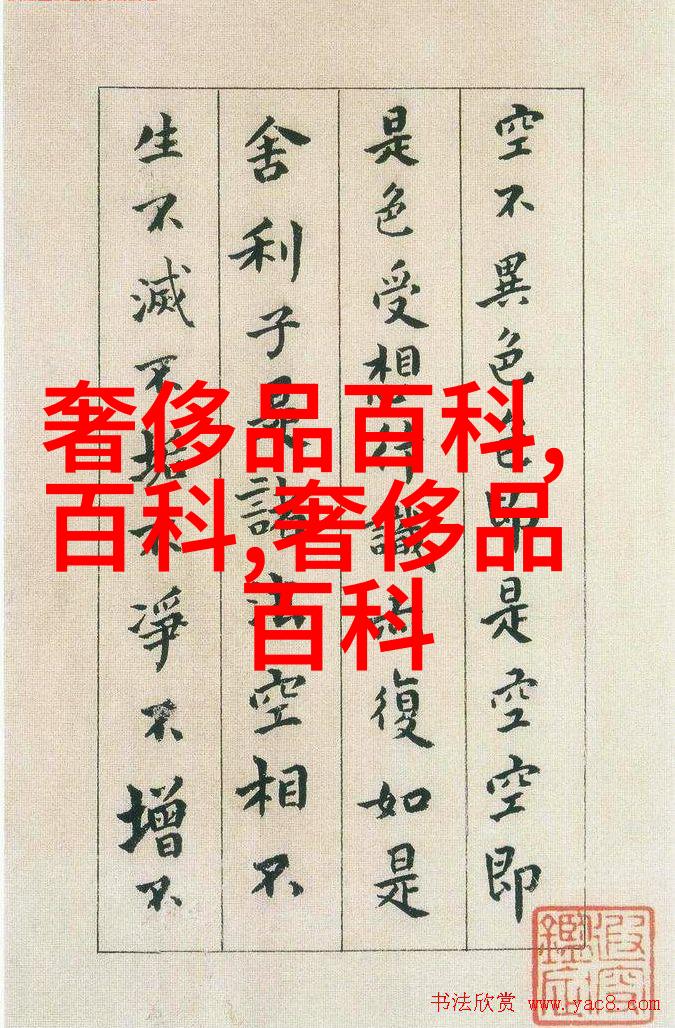 空不異色色即是空空即
是色受想行識亦復如是
舍利子是諸法空相不
生不滅不垢不淨不增不
奢侈品百科,
百科,奢侈品
百科
书法欣赏 www.yac8.com